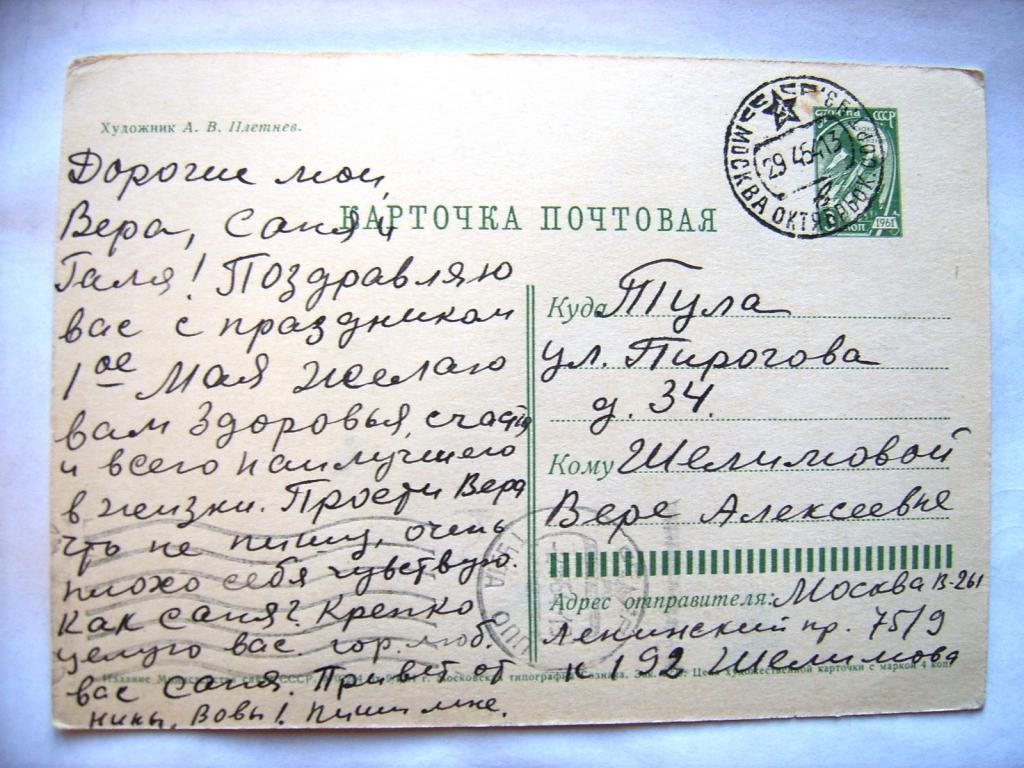 Художник А. В. Плетнев.
КАРТОЧКА ПОЧТОВАЯ
МОСКВА
29 4 64 13
ПОЧТА СССР
1961
Дорогие мои,
Вера, Саня и
Галя! Поздравляю
вас с праздником
1ое Мая желаю
вам здоровья, счастья
и всего наилучшего
в жизни. Прости Вера
что не пишу, очень
плохо себя чувствую.
Как Саня? Крепко
целую вас. гор. люб.
вас Саня. Привет от
Нины, Вовы! Пиши мне.
Куда Тула
ул. Пирогова
д. 34.
Кому Шелимовой
Вере Алексеевне
Адрес отправителя: Москва В-261
Ленинский пр. 75/9
к 192 Шелимова
Издание Министерства связи СССР. Московская типография Гознака. Зак. Цена художественной карточки с маркой 4 коп.